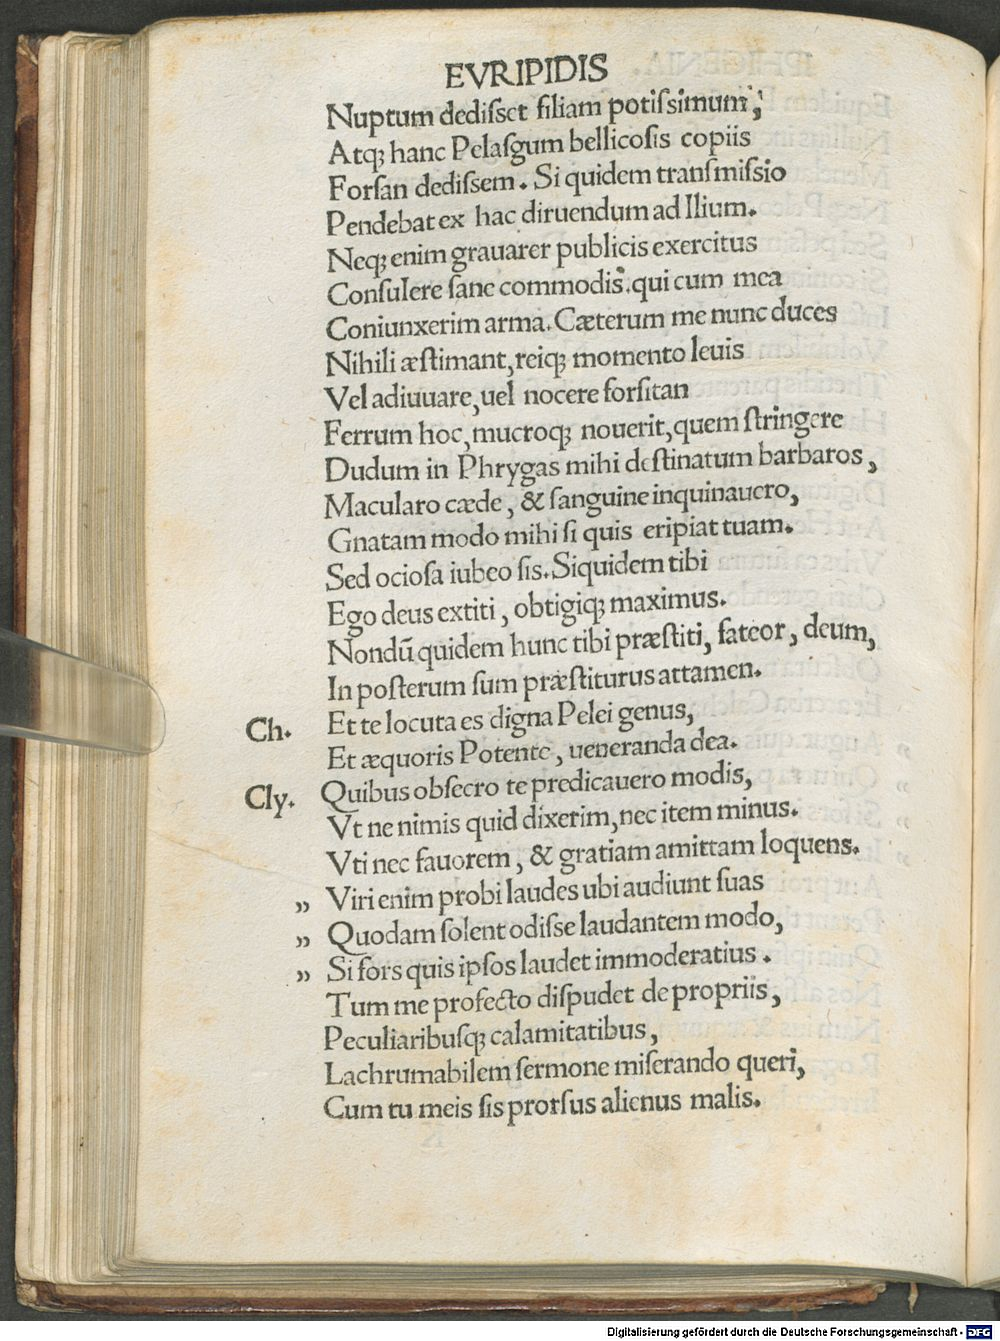 EVRIPIDIS
Nuptum dediſſet filiam potiſſimum,
Atq; hanc Pelaſgum bellicoſis copiis
Forſan dediſſem. Si quidem tranſmiſſio
Pendebat ex hac diruendum ad Ilium.
Neq; enim grauarer publicis exercitus
Conſulere ſane commodis. qui cum mea
Coniunxerim arma. Cæterum me nunc duces
Nihili æſtimant, reiq; momento leuis
Vel adiuuare, uel nocere forſitan
Ferrum hoc, mucroq; nouerit, quem ſtringere
Dudum in Phrygas mihi deſtinatum barbaros,
Macularo cæde, & ſanguine inquinauero,
Gnatam modo mihi ſi quis eripiat tuam.
Sed ocioſa iubeo ſis. Siquidem tibi
Ego deus extiti, obtigiq; maximus.
Nondū quidem hunc tibi præſtiti, fateor, deum,
In poſterum ſum præſtiturus attamen.
Ch. Et te locuta es digna Pelei genus,
Et æquoris Potente, ueneranda dea.
Cly. Quibus obſecro te predicauero modis,
Vt ne nimis quid dixerim, nec item minus.
Vti nec fauorem, & gratiam amittam loquens.
„ Viri enim probi laudes ubi audiunt ſuas
„ Quodam ſolent odiſſe laudantem modo,
„ Si fors quis ipſos laudet immoderatius.
Tum me profecto diſpudet de propriis,
Peculiaribuſq; calamitatibus,
Lachrumabilem ſermone miſerando queri,
Cum tu meis ſis prorſus alienus malis.
Digitalisierung gefördert durch die Deutsche Forschungsgemeinschaft - DFG